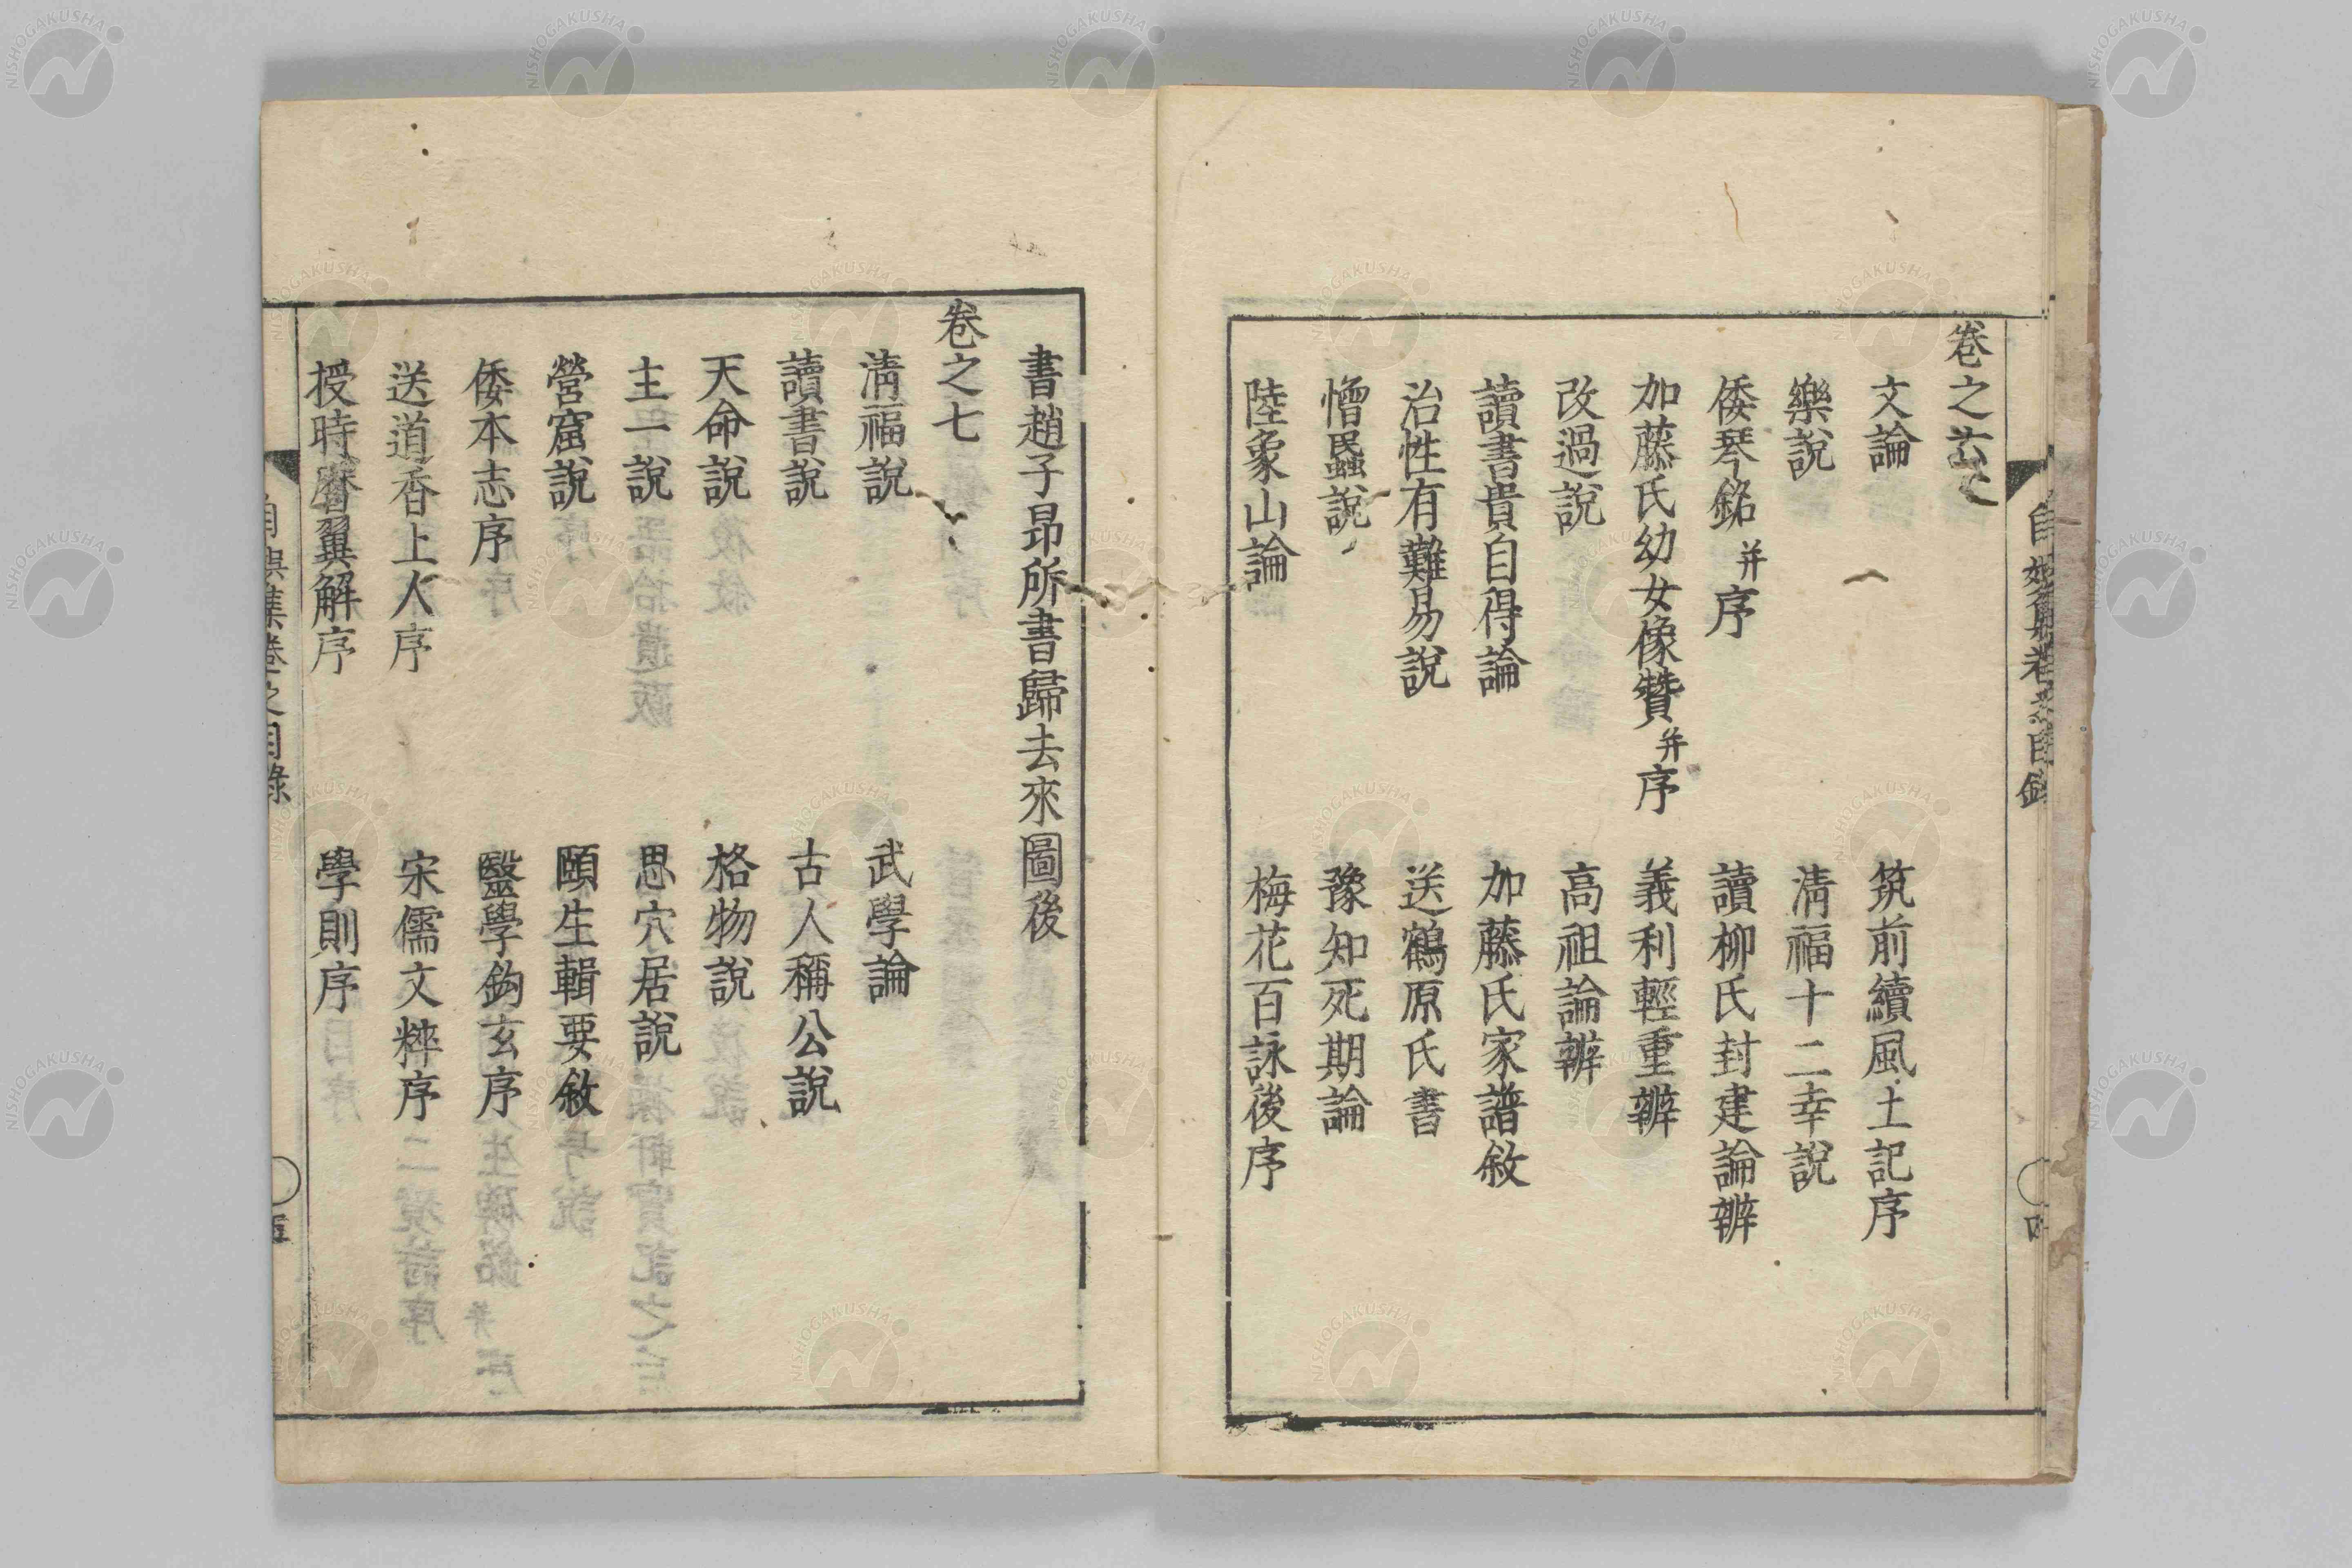 卷之六
文論　筑前續風土記序
樂說　清福十二幸說
倭琴銘并序　讀柳氏封建論辨
加藤氏幼女像贊并序　義利輕重辨
改過說　高祖論辨
讀書貴自得論　加藤氏家譜敘
治性有難易說　送鶴原氏書
憎蟁說　豫知死期論
陸象山論　梅花百詠後序
書趙子昂所書歸去來圖後
卷之七
清福說　武學論
讀書說　古人稱公說
天命說　格物說
主一說　思穴居說
營窟說　頤生輯要敘
倭本志序　醫學鈎玄序
送道香上人序　宋儒文粹序
授時曆翼解序　學則序
自娛集卷之目錄
NISHOGAKUSHA